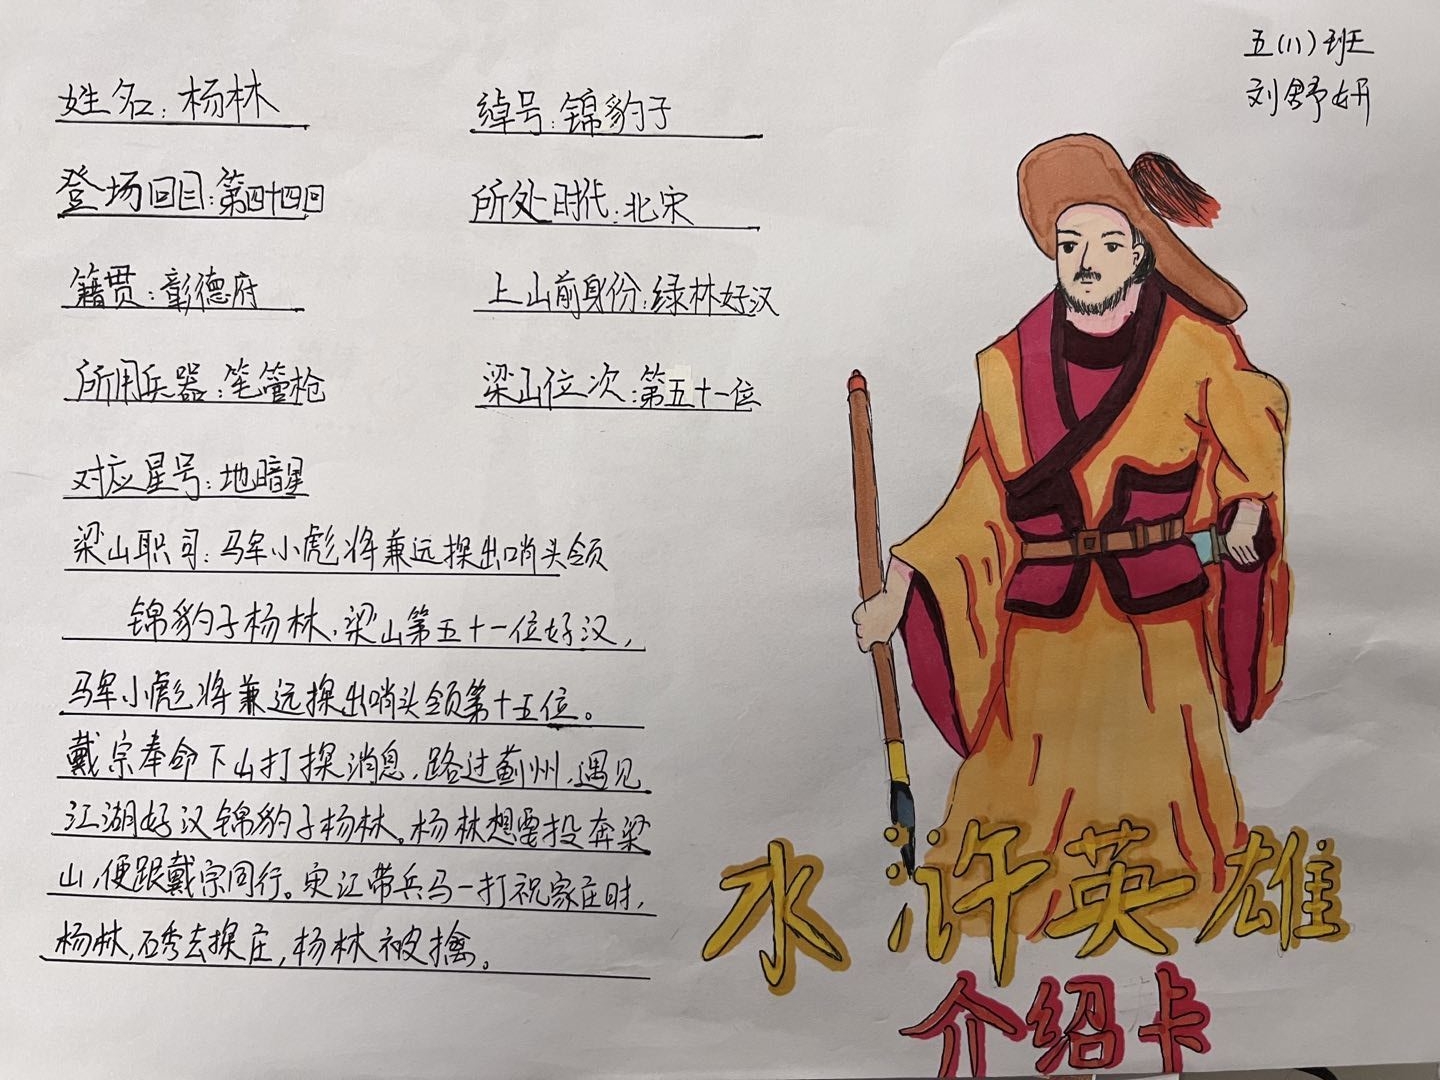 五(11)班
刘舒妍
姓名:杨林
绰号:锦豹子
登场回目:第四十四回
所处时代:北宋
籍贯:彰德府
上山前身份:绿林好汉
所用兵器:笔管枪
梁山位次:第五十一位
对应星号:地暗星
梁山职司:马军小彪将兼远探出哨头领
锦豹子杨林,梁山第五十一位好汉,
马军小彪将兼远探出哨头领第十五位。
戴宗奉命下山打探消息,路过蓟州,遇见
江湖好汉锦豹子杨林。杨林想要投奔梁
山,便跟戴宗同行。宋江带兵马一打祝家庄时,
杨林,石秀去探庄,杨林被擒。
水浒英雄
介绍卡